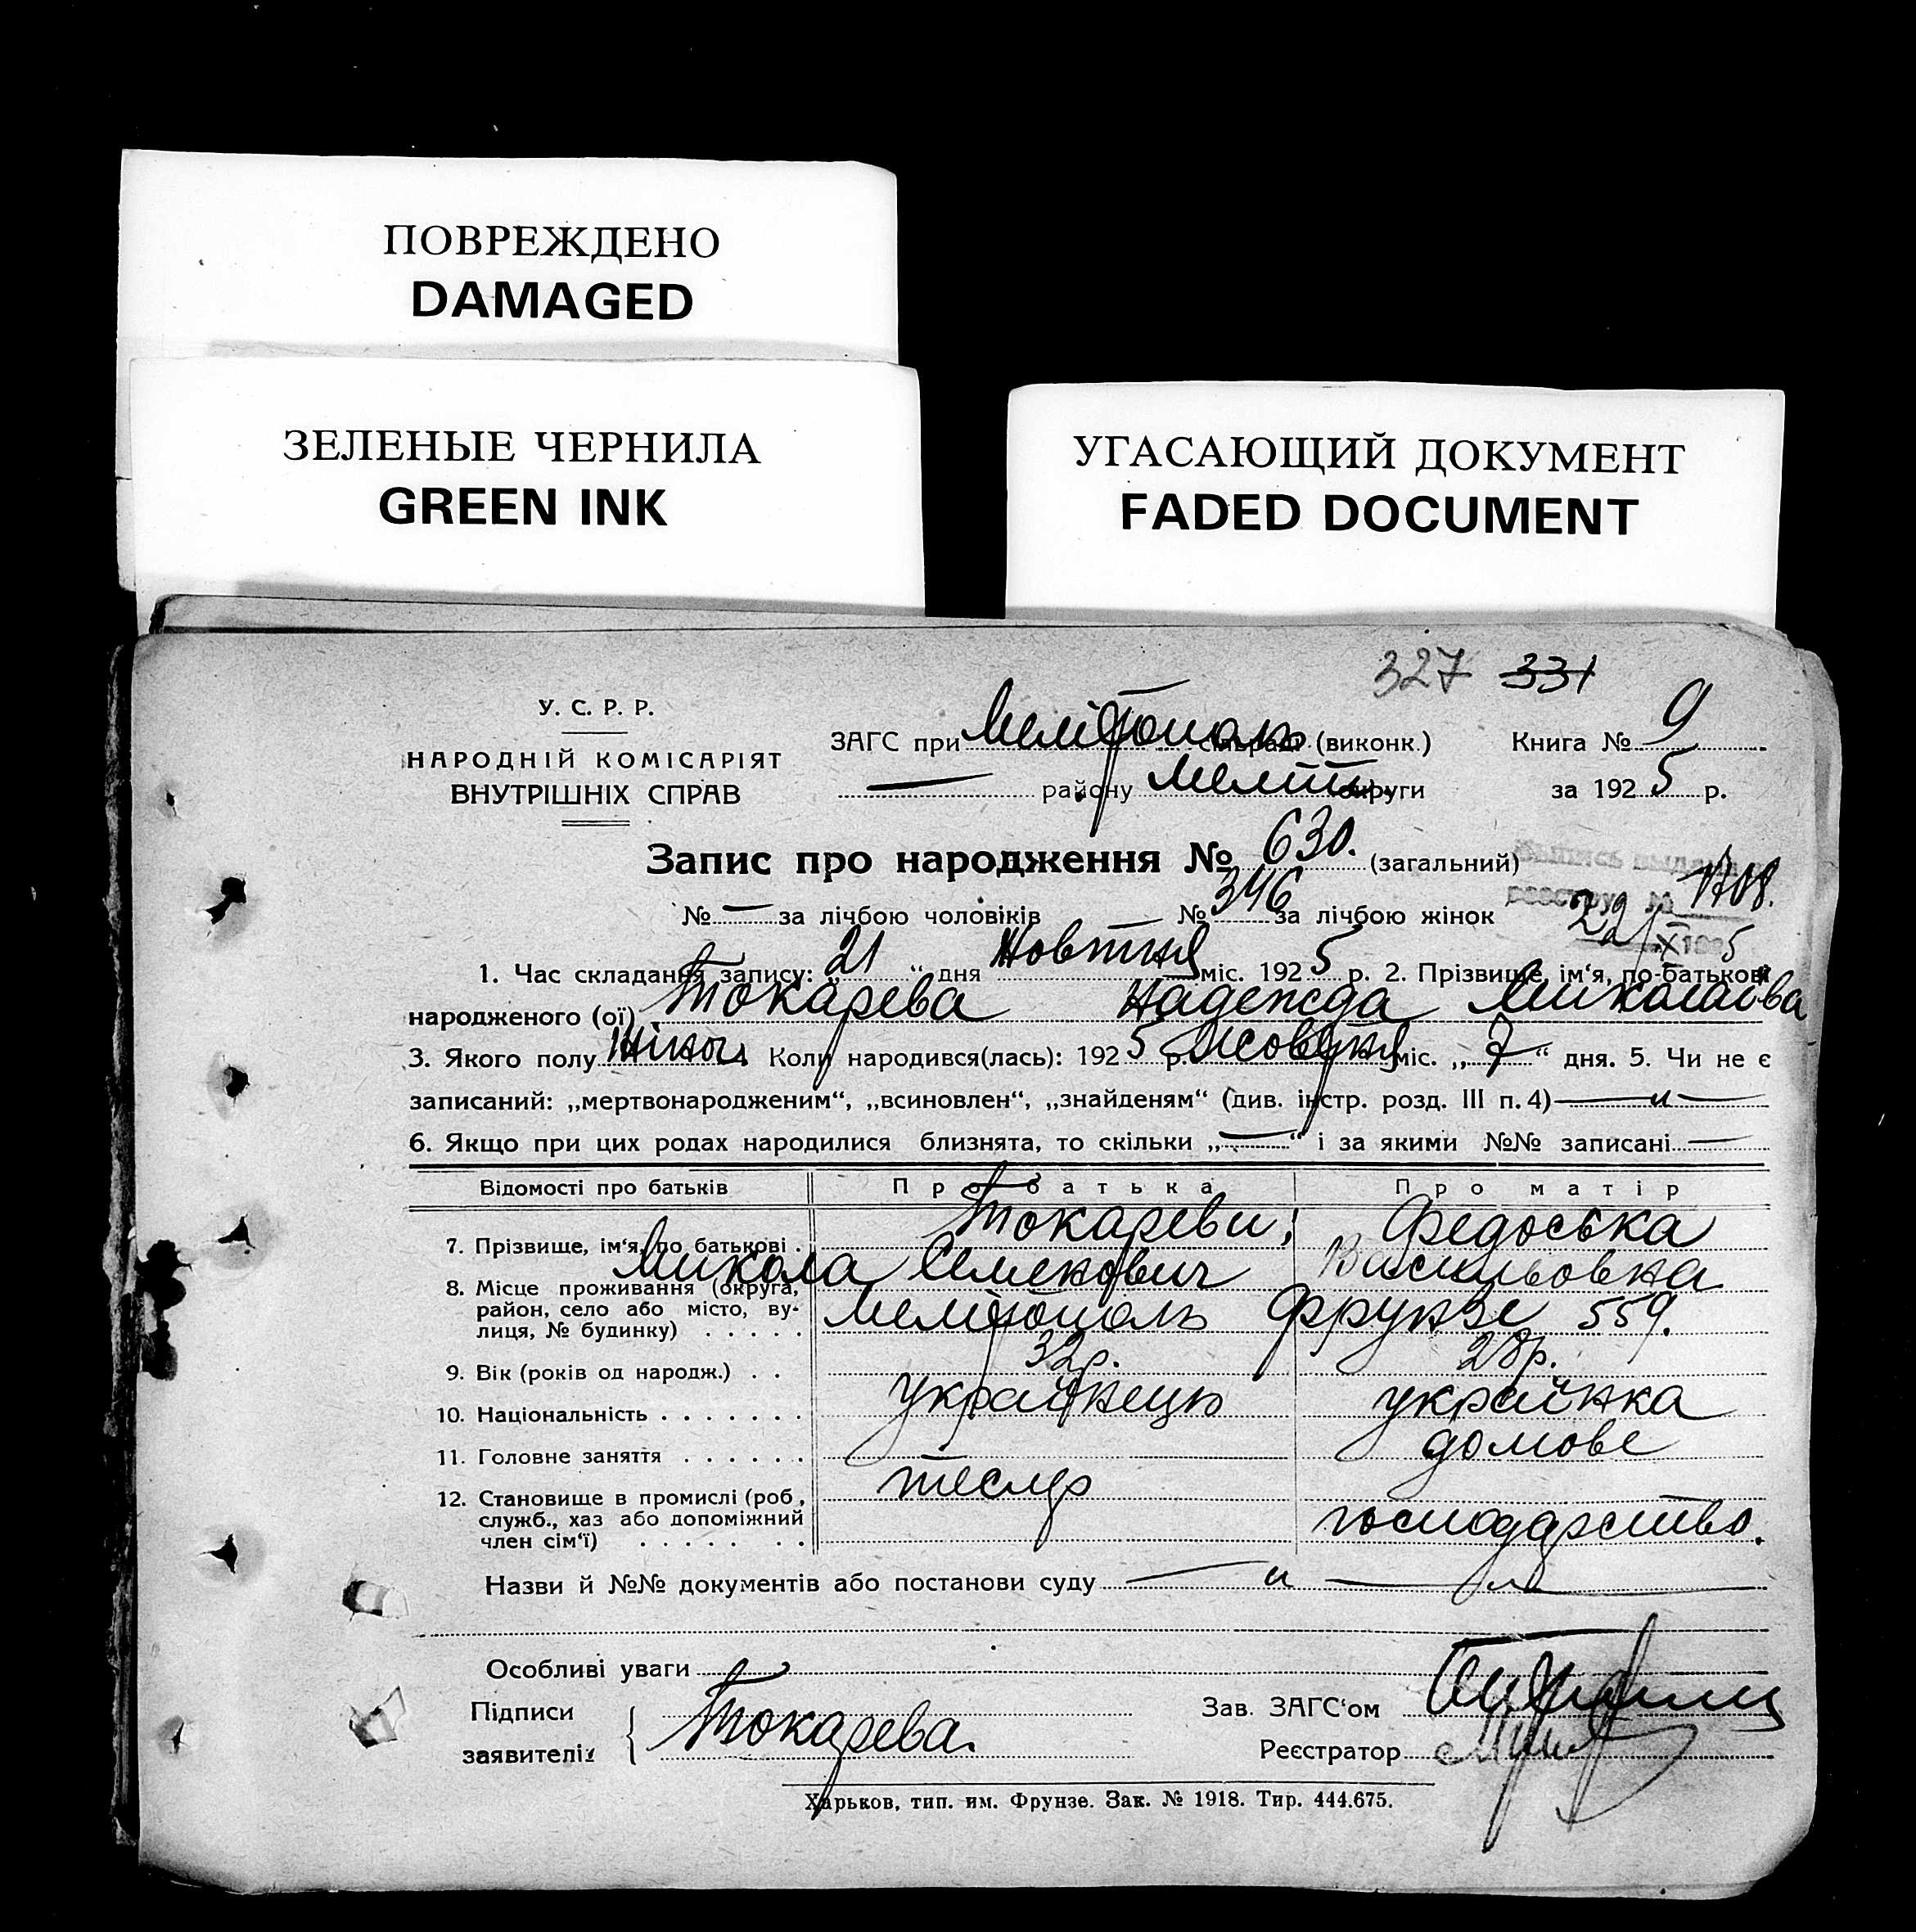 ПОВРЕЖДЕНО
DAMAGED
ЗЕЛЕНЫЕ ЧЕРНИЛА
GREEN INK
УГАСАЮЩИЙ ДОКУМЕНТ
FADED DOCUMENT
327 331
У. С. Р. Р.
НАРОДНІЙ КОМІСАРІЯТ
ВНУТРІШНІХ СПРАВ
ЗАГС при Мелітополь сільраді (виконк.) Книга № 9
— району Меліт. округи за 1925 р.
Запис про народження № 630. (загальний)
Выпись выдана
реестру № 1708.
22/X 1925
№ — за лічбою чоловіків № 346 за лічбою жінок
1. Час складання запису: „21“ дня Жовтня міс. 1925 р. 2. Прізвище, ім‘я, по-батькові
народженого (ої) Токарева Надежда Миколаївa
3. Якого полу Жіноч. Коли народився(лась): 1925 р. Жовтня міс. „7“ дня. 5. Чи не є
записаний: „мертвонародженим“, „всиновлен“, „знайденям“ (див. інстр. розд. III п. 4) — „ —
6. Якщо при цих родах народилися близнята, то скільки „—“ і за якими №№ записані —
Відомості про батьків Про батька Про матір
7. Прізвище, ім‘я, по батькові . Токареви; Федоська
Микола Семенович Васильовна
8. Місце проживання (округа,
район, село або місто, ву-
лиця, № будинку) . . . . . Мелітополь Фрунзе 559.
9. Вік (років од народж.) . . 32р. 28р.
10. Національність . . . . . . . українець українка
11. Головне заняття . . . . . . домове
12. Становище в промислі (роб., тесляр
служб., хаз або допоміжний господарство.
член сім‘ї) . . . . . . .
Назви й №№ документів або постанови суду — „ —
Особливі уваги
Підписи Зав. ЗАГС‘ом
заявителів Токарева. Реєстратор
Харьков, тип. им. Фрунзе. Зак. № 1918. Тир. 444.675.